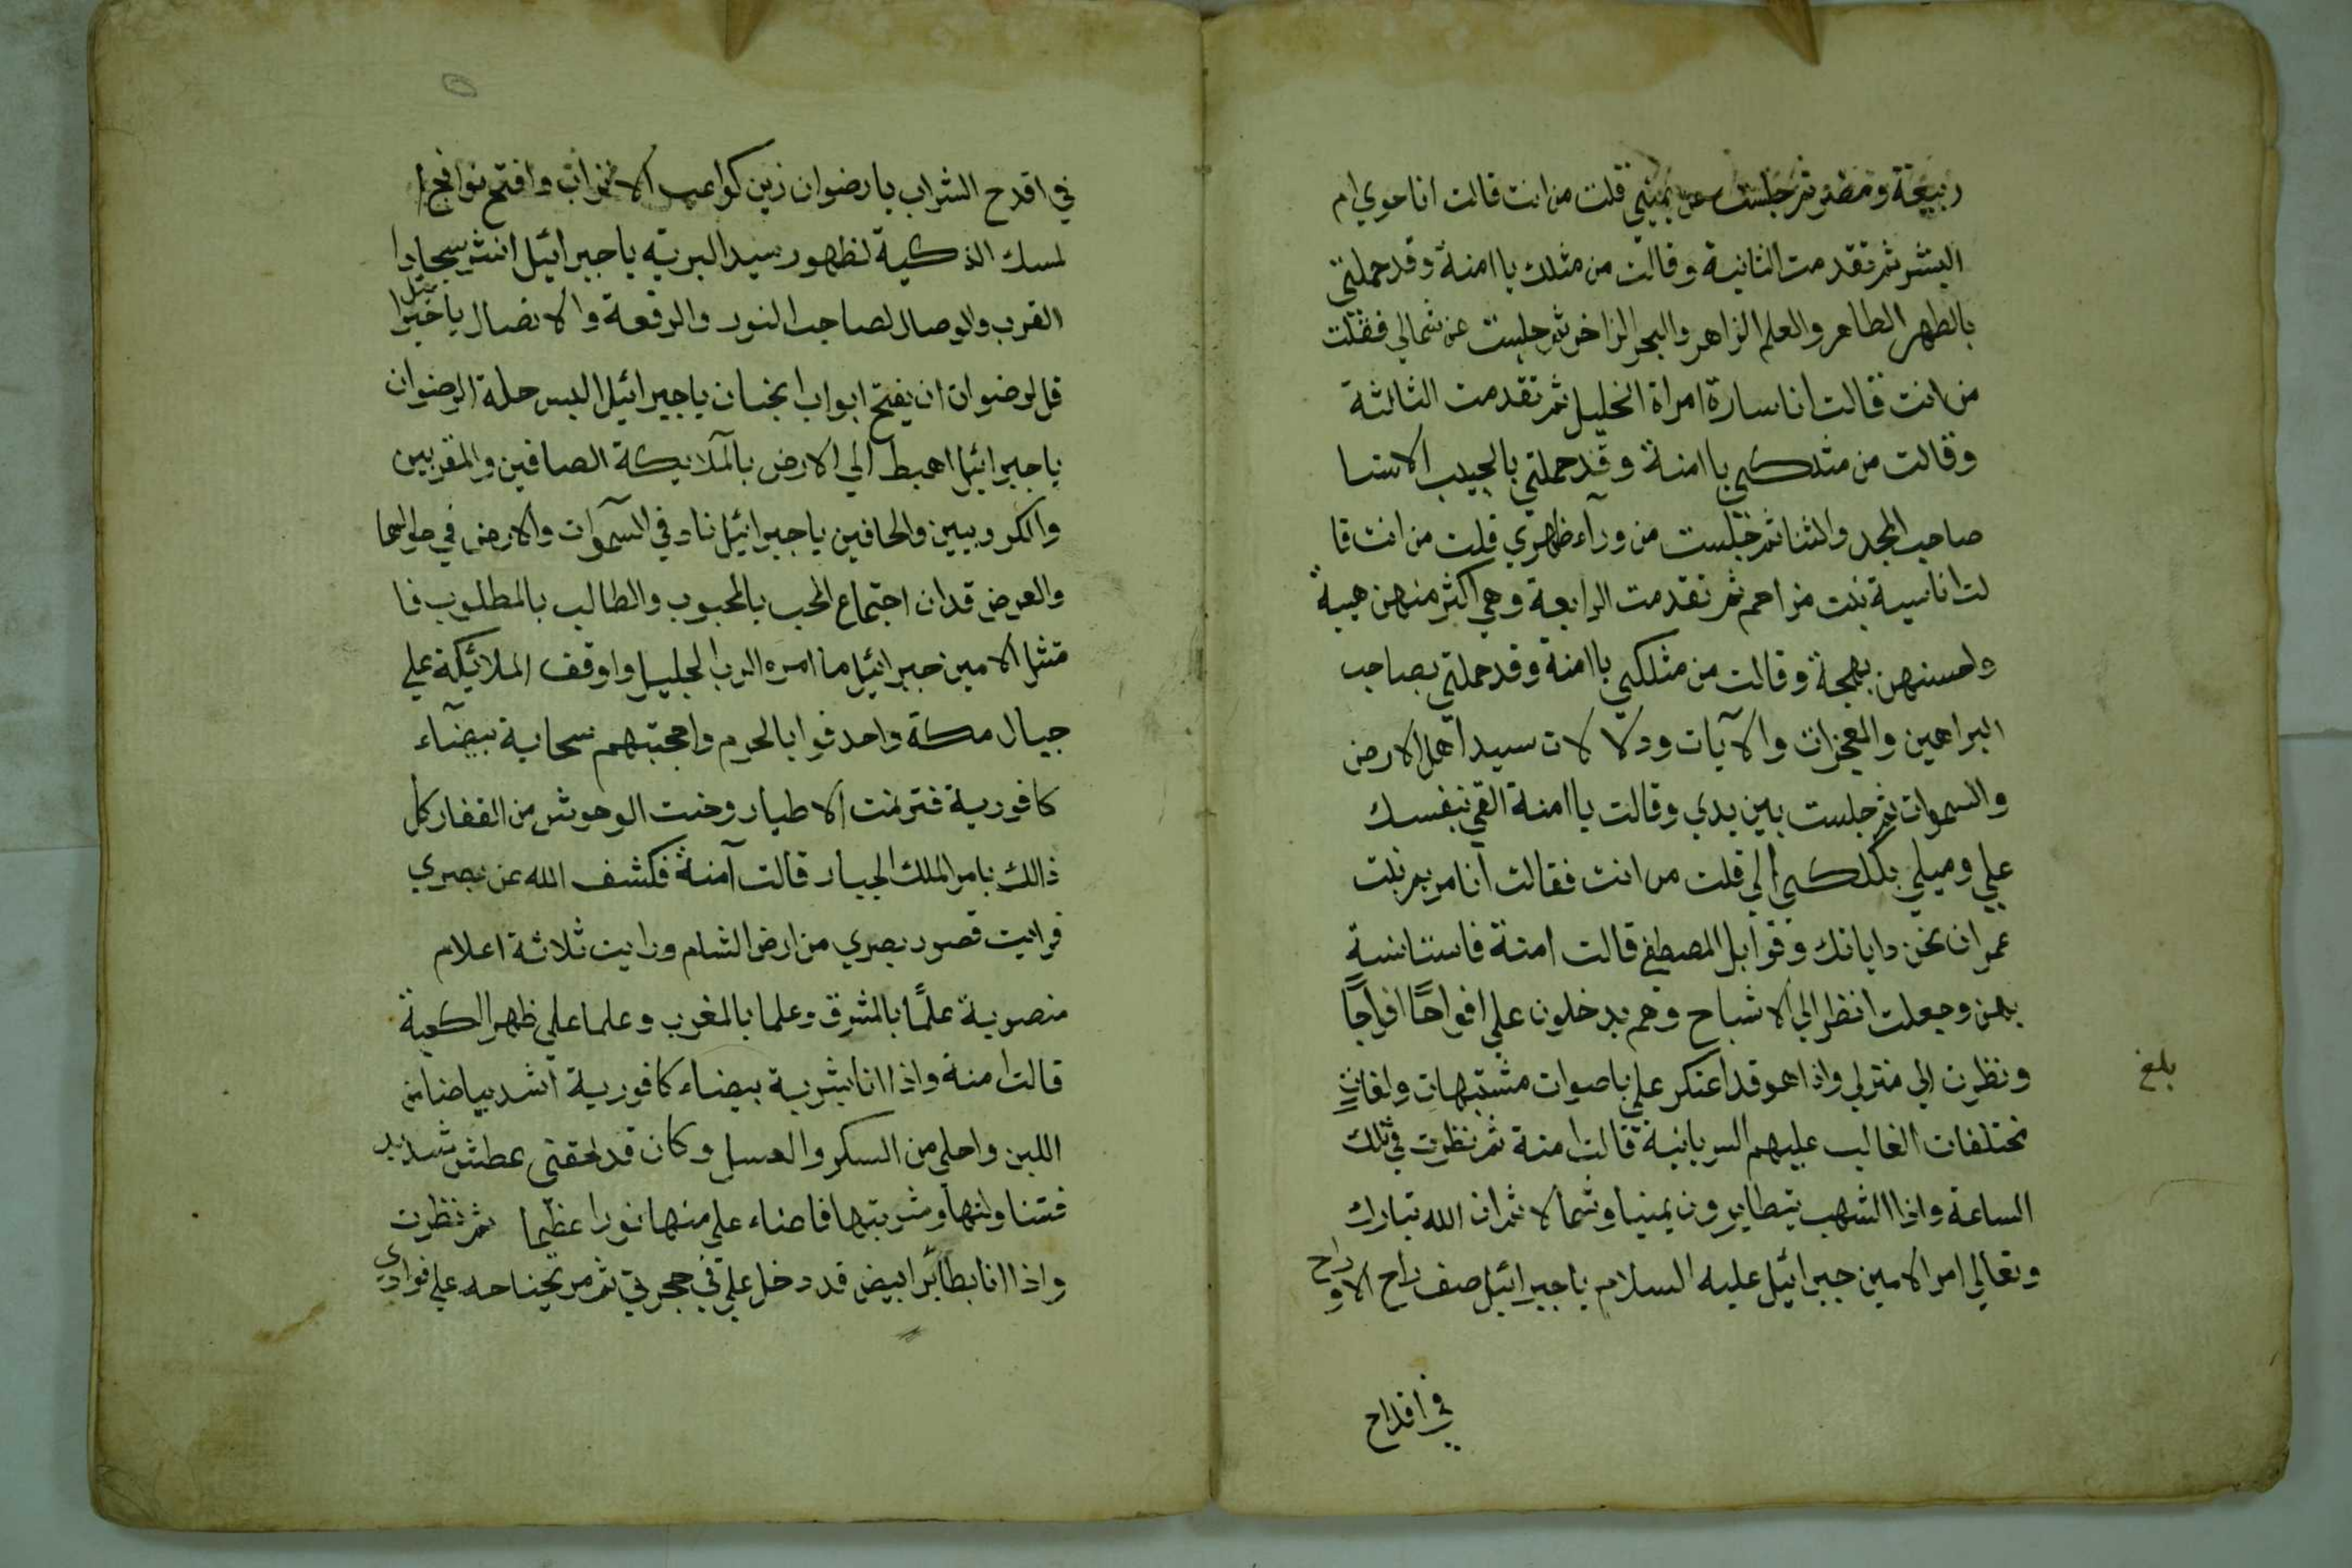 ربيعة ومضر ثم جلست عن يميني قلت من انت قالت انا حوي ام
البشر ثم تقدمت الثانية وقالت من مثلك يا امنة وقد حملتي
بالطهر الطاهر والعلم الزاهر والبحر الزاخر ثم جلست عن شمالي فقلت
من انت قالت انا سارة امراة الخليل ثم تقدمت الثالثة
وقالت من مثلكي يا امنة وقد حملتي بالحبيب الاسنا
صاحب المجد والثنا ثم جلست من ورآء ظهري قلت من انت قا
لت انا اسية بنت مزاحم ثم تقدمت الرابعة وهي اكثر منهن هيبة
واحسنهن بهجة وقالت من مثلكي يا امنة وقد حملتي بصاحب
البراهين والمعجزات والآيات ودلالات سيد اهل الارض
والسموات ثم جلست بين يدي وقالت يا امنة القي بنفسك
علي وميلي بكلكي الي قلت من انت فقالت انا مريم بنت
عمران نحن داياتك وقوابل المصطفي قالت امنة فاستانسة
بهن وجعلت انظر الي الاشباح وهم يدخلون علي افواجًا افواجًا
ونظرت الي منزلي واذا هو قد اعتكر علي باصوات مشتبهات ولغات
مختلفات الغالب عليهم السريانية قالت امنة ثم نظرت في تلك
الساعة واذا الشهب يتطايرون يمينا وشمالا ثم ان الله تبارك
وتعالي امر الامين جبرائيل عليه السلام يا جبرائيل صف راح الارواح
في اقداح
بلغ
في اقدح الشراب يا رضوان زين كواعب الاتراب وافتح نوافج ا
لمسك الذكية لظهور سيد البرية يا جبرائيل انشر سجادا
القرب والوصال لصاحب النور والرفعة والاتصال يا جبرائيل
قل لرضوان ان يفتح ابواب الجنان يا جبرائيل البس حلة الرضوان
يا جبرائيل اهبط الي الارض بالملآيكة الصافين والمقربين
والكروبيين والحافين يا جبرائيل ناد في السموات والارض في طولهما
والعرض قد ان اجتماع المحب بالمحبوب والطالب بالمطلوب فا
متثل الامين جبرائيل ما امره الرب الجليل واوقف الملائيكة علي
جبال مكة واحدقوا بالحرم واحجبتهم سحابة بيضآء
كافورية فترنمت الاطيار وحنت الوحوش من القفار كل
ذالك بامر الملك الجبار قالت آمنة فكشف الله عن بصري
فرايت قصور بصري من ارض الشام ورايت ثلاثة اعلام
منصوبة علمًا بالمشرق وعلما بالمغرب وعلما علي ظهر الكعبة
قالت امنة واذا انا بشربة بيضاء كافورية اشد بياضا من
اللبن واحلي من السكر والعسل وكان قد لحقني عطش شديد
فتناولتها وشربتها فاضاء علي منها نورا عظيما ثم نظرت
واذا انا بطائر ابيض قد دخل علي في حجرتي ثم مر بجناحه علي فوادي